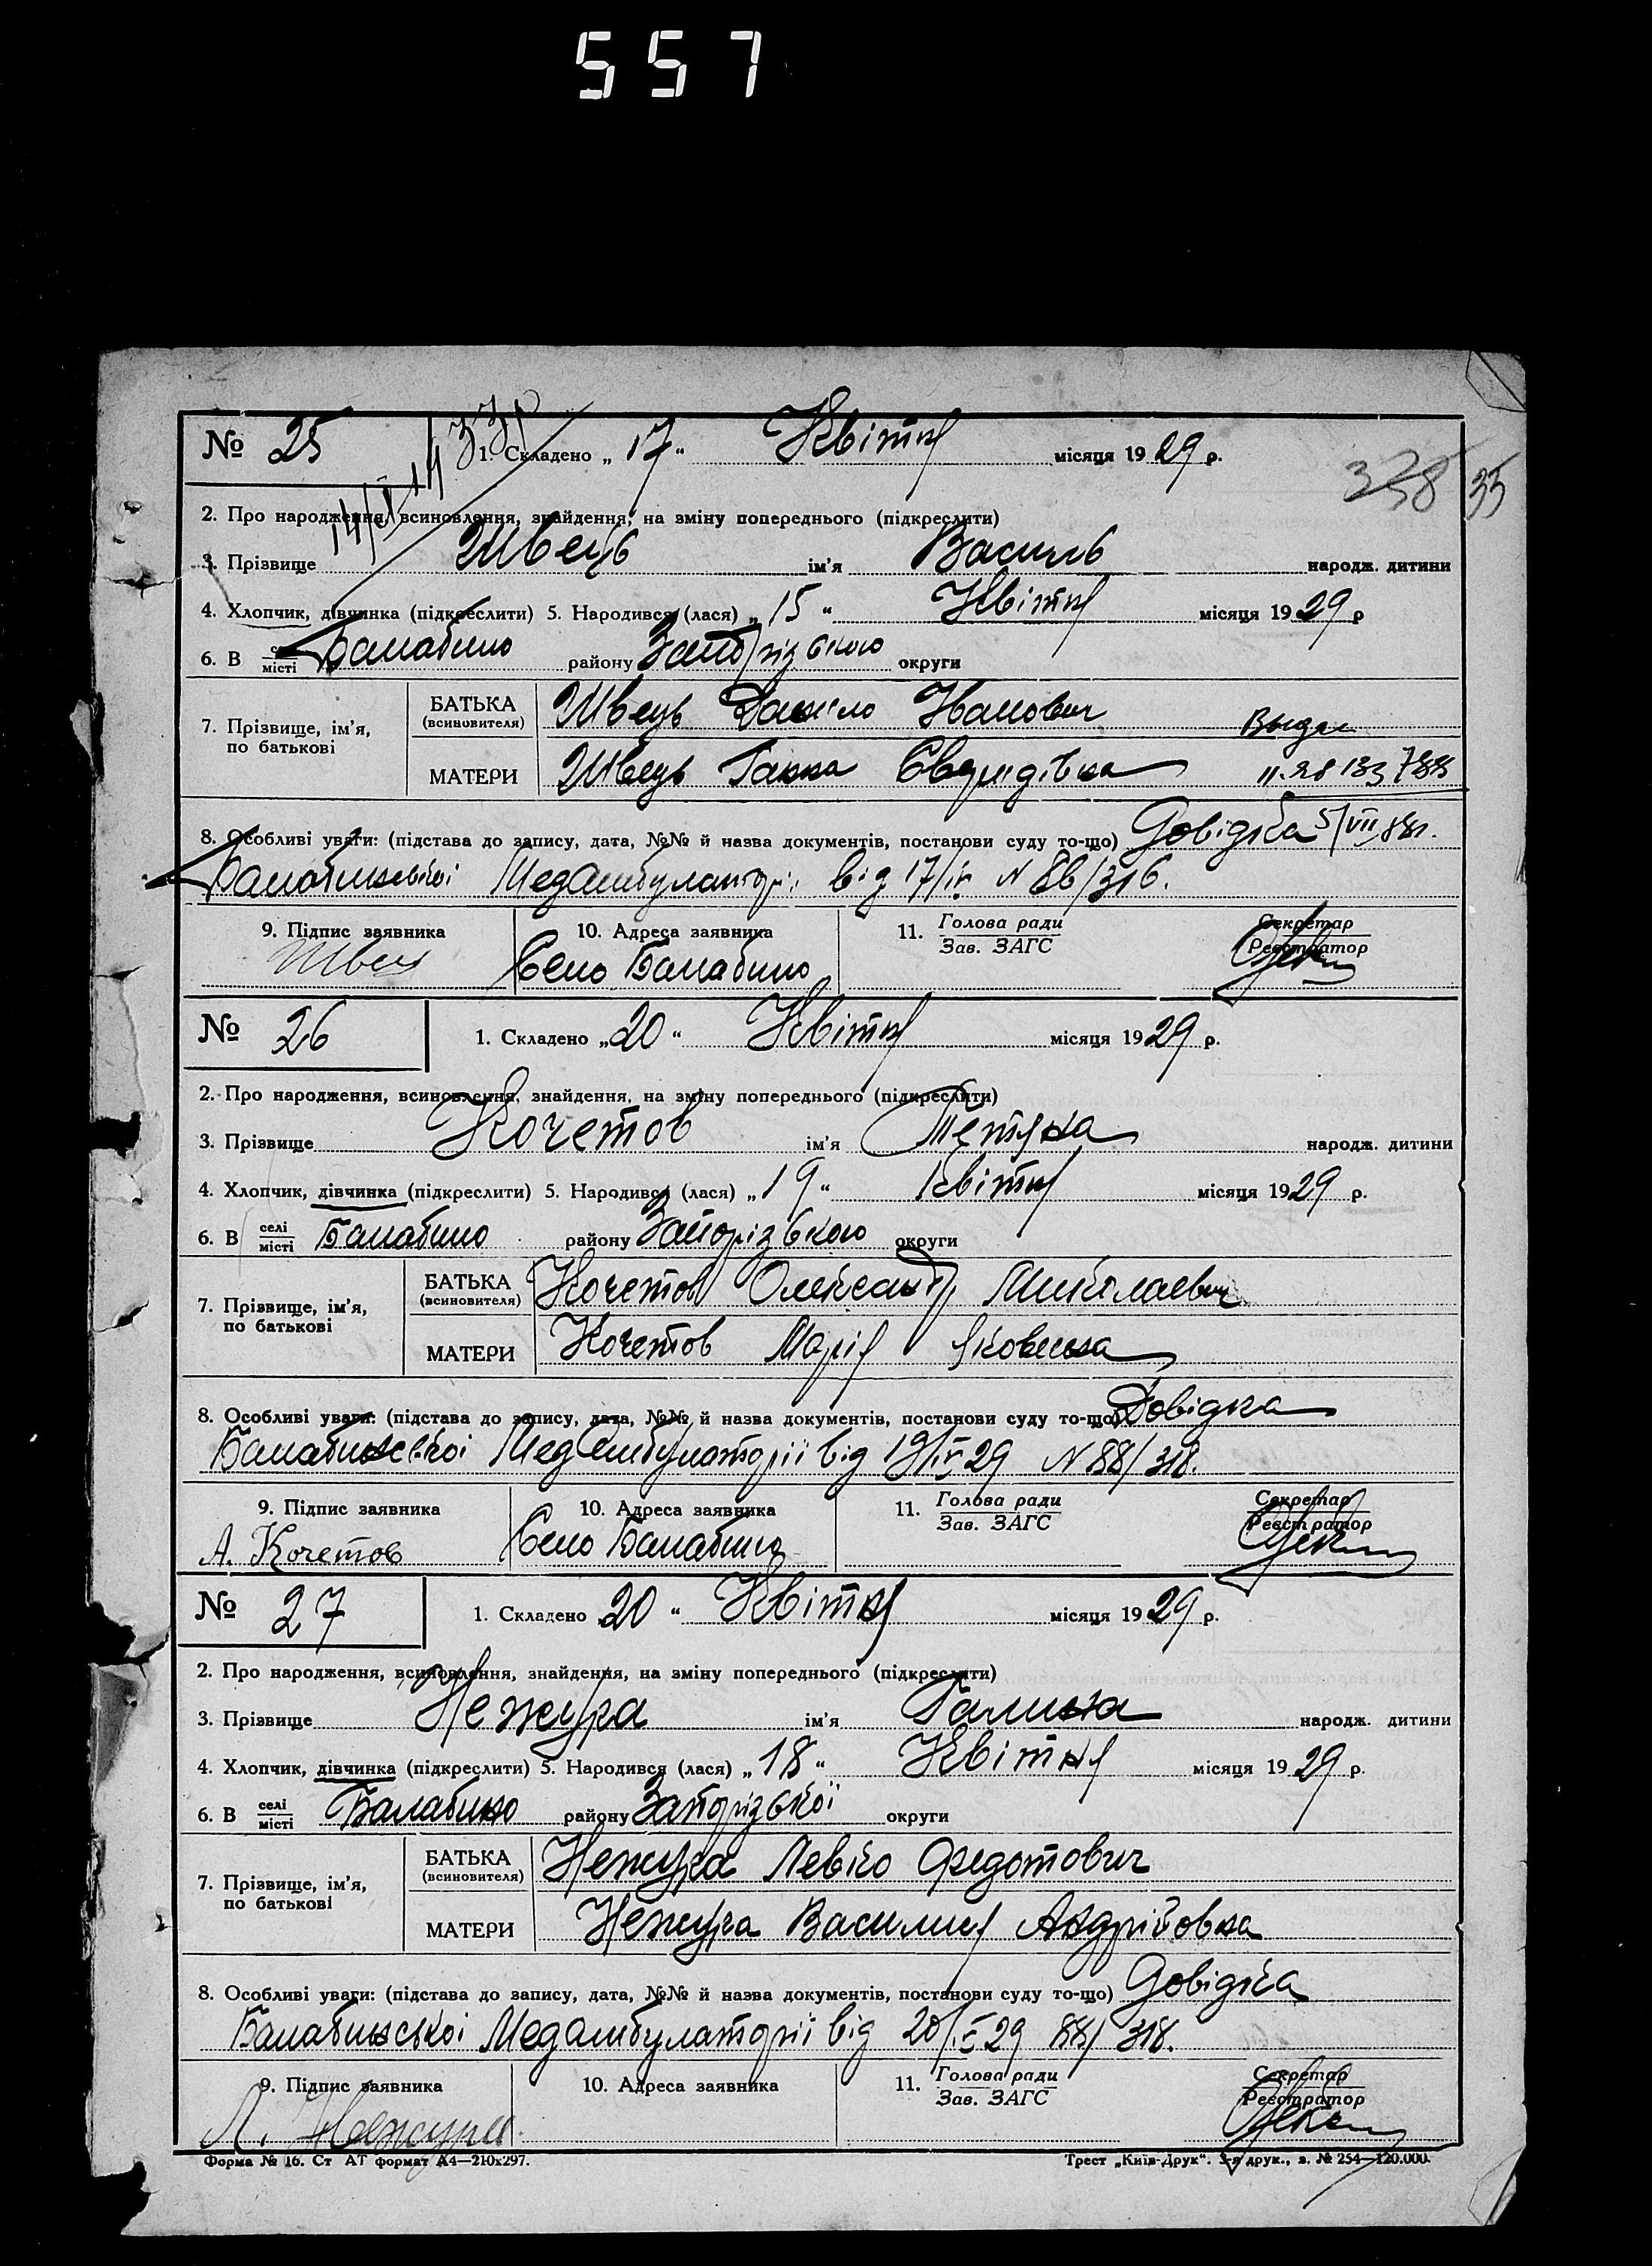 557
№ 25 1. Складено „17“ Квітня місяця 1929 р.
338 35
2. Про народження, всиновлення, знайдення, на зміну попереднього (підкреслити)
3. Прізвище Швець ім'я Василь народж. дитини
4. Хлопчик, дівчинка (підкреслити) 5. Народився (лася) „15“ Квітня місяця 1929 р
6. В селі місті Балабино району Запорізького округи
7. Прізвище, ім'я, по батькові
БАТЬКА (всиновителя) Швець Данило Іванович
МАТЕРИ Швець Ганна
8. Особливі уваги: (підстава до запису, дата, №№ й назва документів, постанови суду то-що) Довідка
Балабинської Медамбулаторії від 17/IV N 86/316.
9. Підпис заявника 10. Адреса заявника 11. Голова ради Секретар
Зав. ЗАГС Реєстратор
Швец Село Балабино
№ 26 1. Складено „20“ Квітня місяця 1929 р.
2. Про народження, всиновлення, знайдення, на зміну попереднього (підкреслити)
3. Прізвище Кочетов ім'я народж. дитини
4. Хлопчик, дівчинка (підкреслити) 5. Народився (лася) „19“ Квітня місяця 1929 р.
6. В селі місті Балабино району Запорізького округи
7. Прізвище, ім'я, по батькові
БАТЬКА (всиновителя) Кочетов Олександр Миколаевич
МАТЕРИ Кочетов Марія Яковевна
8. Особливі уваги: (підстава до запису, дата, №№ й назва документів, постанови суду то-що) Довідка
Балабинської Медамбулаторії від 19/IV 29 N 88/318.
9. Підпис заявника 10. Адреса заявника 11. Голова ради Секретар
Зав. ЗАГС Реєстратор
А. Кочетов Село Балабино
№ 27 1. Складено 20“ Квітня місяця 1929 р.
2. Про народження, всиновлення, знайдення, на зміну попереднього (підкреслити)
3. Прізвище Нежура ім'я Галина народж. дитини
4. Хлопчик, дівчинка (підкреслити) 5. Народився (лася) „18“ Квітня місяця 1929 р.
6. В селі місті Балабино району Запорізької округи
7. Прізвище, ім'я, по батькові
БАТЬКА (всиновителя) Нежура Левко Федотович
МАТЕРИ Нежура Василия Андрійовна
8. Особливі уваги: (підстава до запису, дата, №№ й назва документів, постанови суду то-що) Довідка
Балабинської Медамбулаторії від 20/IV 29 88/318.
9. Підпис заявника 10. Адреса заявника 11. Голова ради Секретар
Зав. ЗАГС Реєстратор
Л. Нежура
Форма № 16. Ст АТ формат А4—210х297. Трест „Київ-Друк“. 3-я друк., з. № 254—120.000.